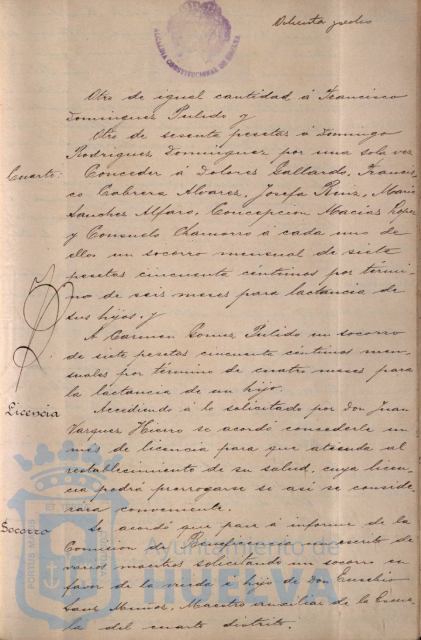 Ochenta y ocho
ALCALDIA CONSTITUCIONAL DE HUELVA
Otro de igual cantidad á Francisco
Dominguez Pulido y
Otro de sesenta pesetas á Domingo
Rodriguez Dominguez por una sola vez
Cuarto: Conceder á Dolores Gallardo, Francis-
co Cabrera Alvarez, Josefa Ruiz, Maria
Sanchez Alfaro, Concepcion Macias Lopez
y Consuelo Chamorro á cada uno de
ellos un socorro mensual de siete
pesetas cincuenta céntimos por térmi-
no de seis meses para lactancia de
sus hijos; y
A Carmen Gomez Pulido un socorro
de siete pesetas cincuenta céntimos men-
suales por término de cuatro meses para
la lactancia de un hijo.
Licencia Accediendo á lo solicitado por Don Juan
Vazquez Hierro se acordó concederle un
mes de licencia para que atienda al
restablecimiento de su salud, cuya licen-
cia podrá prorrogarse si asi se conside-
rara conveniente.
Socorro Se acordó que pase á informe de la
Comision de Beneficencia un escrito de
varios maestros solicitando un socorro en
favor de la viuda é hijo de Don Eusebio
Sanz Muñoz, Maestro auxiliar de la Escue-
la del cuarto distrito.
Ayuntamiento de
HUELVA
PORTUS MARIS